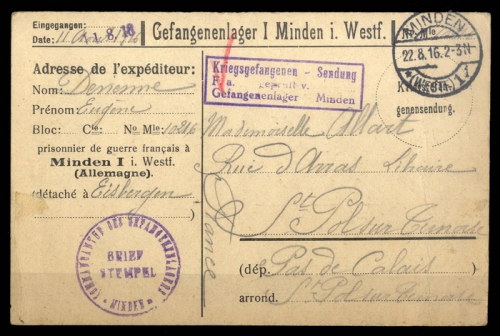 Eingegangen:
Date: 11 Août 1916
11.8.16
Gefangenenlager I Minden i. Westf.
MINDEN
22.8.16.2-3N
*(WESTF.)1
Kriegsgefangenen - Sendung
F. a. geprüft v.
Gefangenenlager - Minden
Kriegsge-
genensendung.
Adresse de l'expéditeur:
Nom: Denenne
Prénom: Eugène
Bloc: Cie No Mle: 10246
prisonnier de guerre français à
Minden I i. Westf.
(Allemagne).
(détaché à Eisbergen)
Mademoiselle Mart
Rue d'Arras Libraire
St Pol sur Ternoise
France
(dép. Pas de Calais)
arrond. St Pol sur Ternoise
KOMMANDANTUR DES GEFANGENENLAGERS
BRIEF
STEMPEL
* MINDEN *